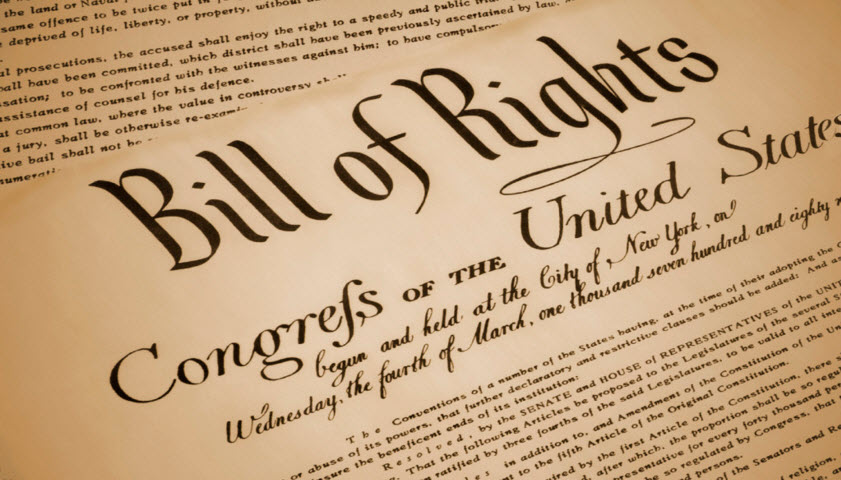 the land or Nav
same offence to be twice put in
deprived of life, liberty, or property, without
prosecutions, the accused shall enjoy the right to a speedy and public
have been committed, which district shall have been previously ascertained by law,
to be confronted with the witnesses against him; to have compulsor
assistance of counsel for his defence.
at common law, where the value in controversy
a jury, shall be otherwise re-exami
bail shall not be
Bill of Rights
Congreſs OF THE United States
begun and held at the City of New York, on
Wednesday, the fourth of March, one thousand seven hundred and eighty
The Conventions of a number of the States having, at the time of their adopting the
or abuse of its powers, that further declaratory and restrictive clauses should be added: And as
the beneficent ends of its institution:
Resolved, by the SENATE and HOUSE of REPRESENTATIVES of the UNIT
That the following Articles be proposed to the Legislatures of the several S
ratified by three fourths of the said Legislatures, to be valid to all inte
in addition to, and Amendment of the Constitution of the Un
to the fifth Article of the Original Constitution.
by the first Article of the Constitution, there s
after which, the proportion shall be so regul
for every forty thousand per
be so regulated by Congress, that
persons.
of the Senators and Re
religion,